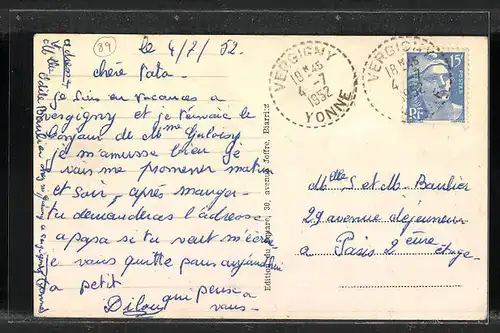 89
le 4/7/52.
chère Tata
je suis en vacances a
vergigny et je t'envoie le
bonjour de Mme
je m'amuse bien je
vais me promener matin
et soir, après manger
tu demanderas l'adresse
a papa si tu veut m'écrire
je vous quitte pour aujourd'hui
a petit
Dilou qui pense a
vous-
Edition du , 30, avenue Joffre, Biarritz
VERGIGNY
18 H 45
4 -7
1952
YONNE
VERGIGNY
18 H 45
4
15F
POSTES
RF
Mlle S et M- Baulier
29 avenue déjeumeur
a Paris 2 ème étage-